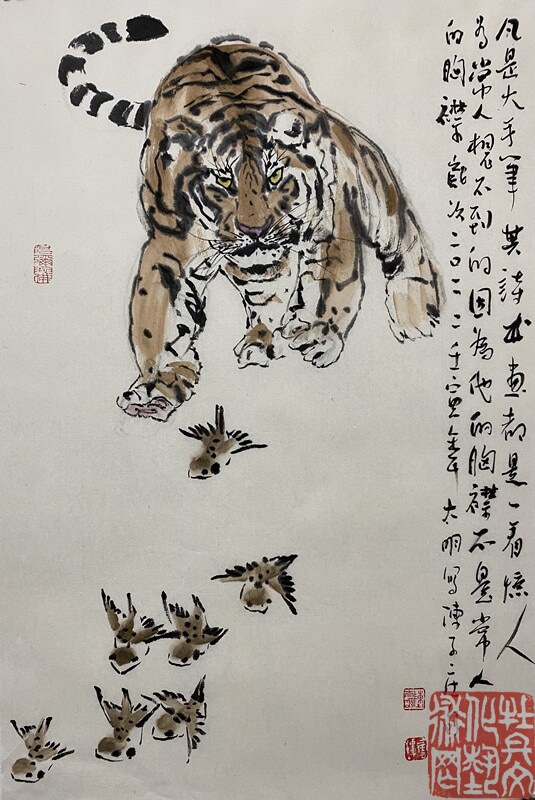 凡是大手筆其詩书畫都是一看人
人想不到的因為他的胸襟不是常人
的胸襟歲次二〇二二壬寅年大明寫陳子
杜兵文
化藝